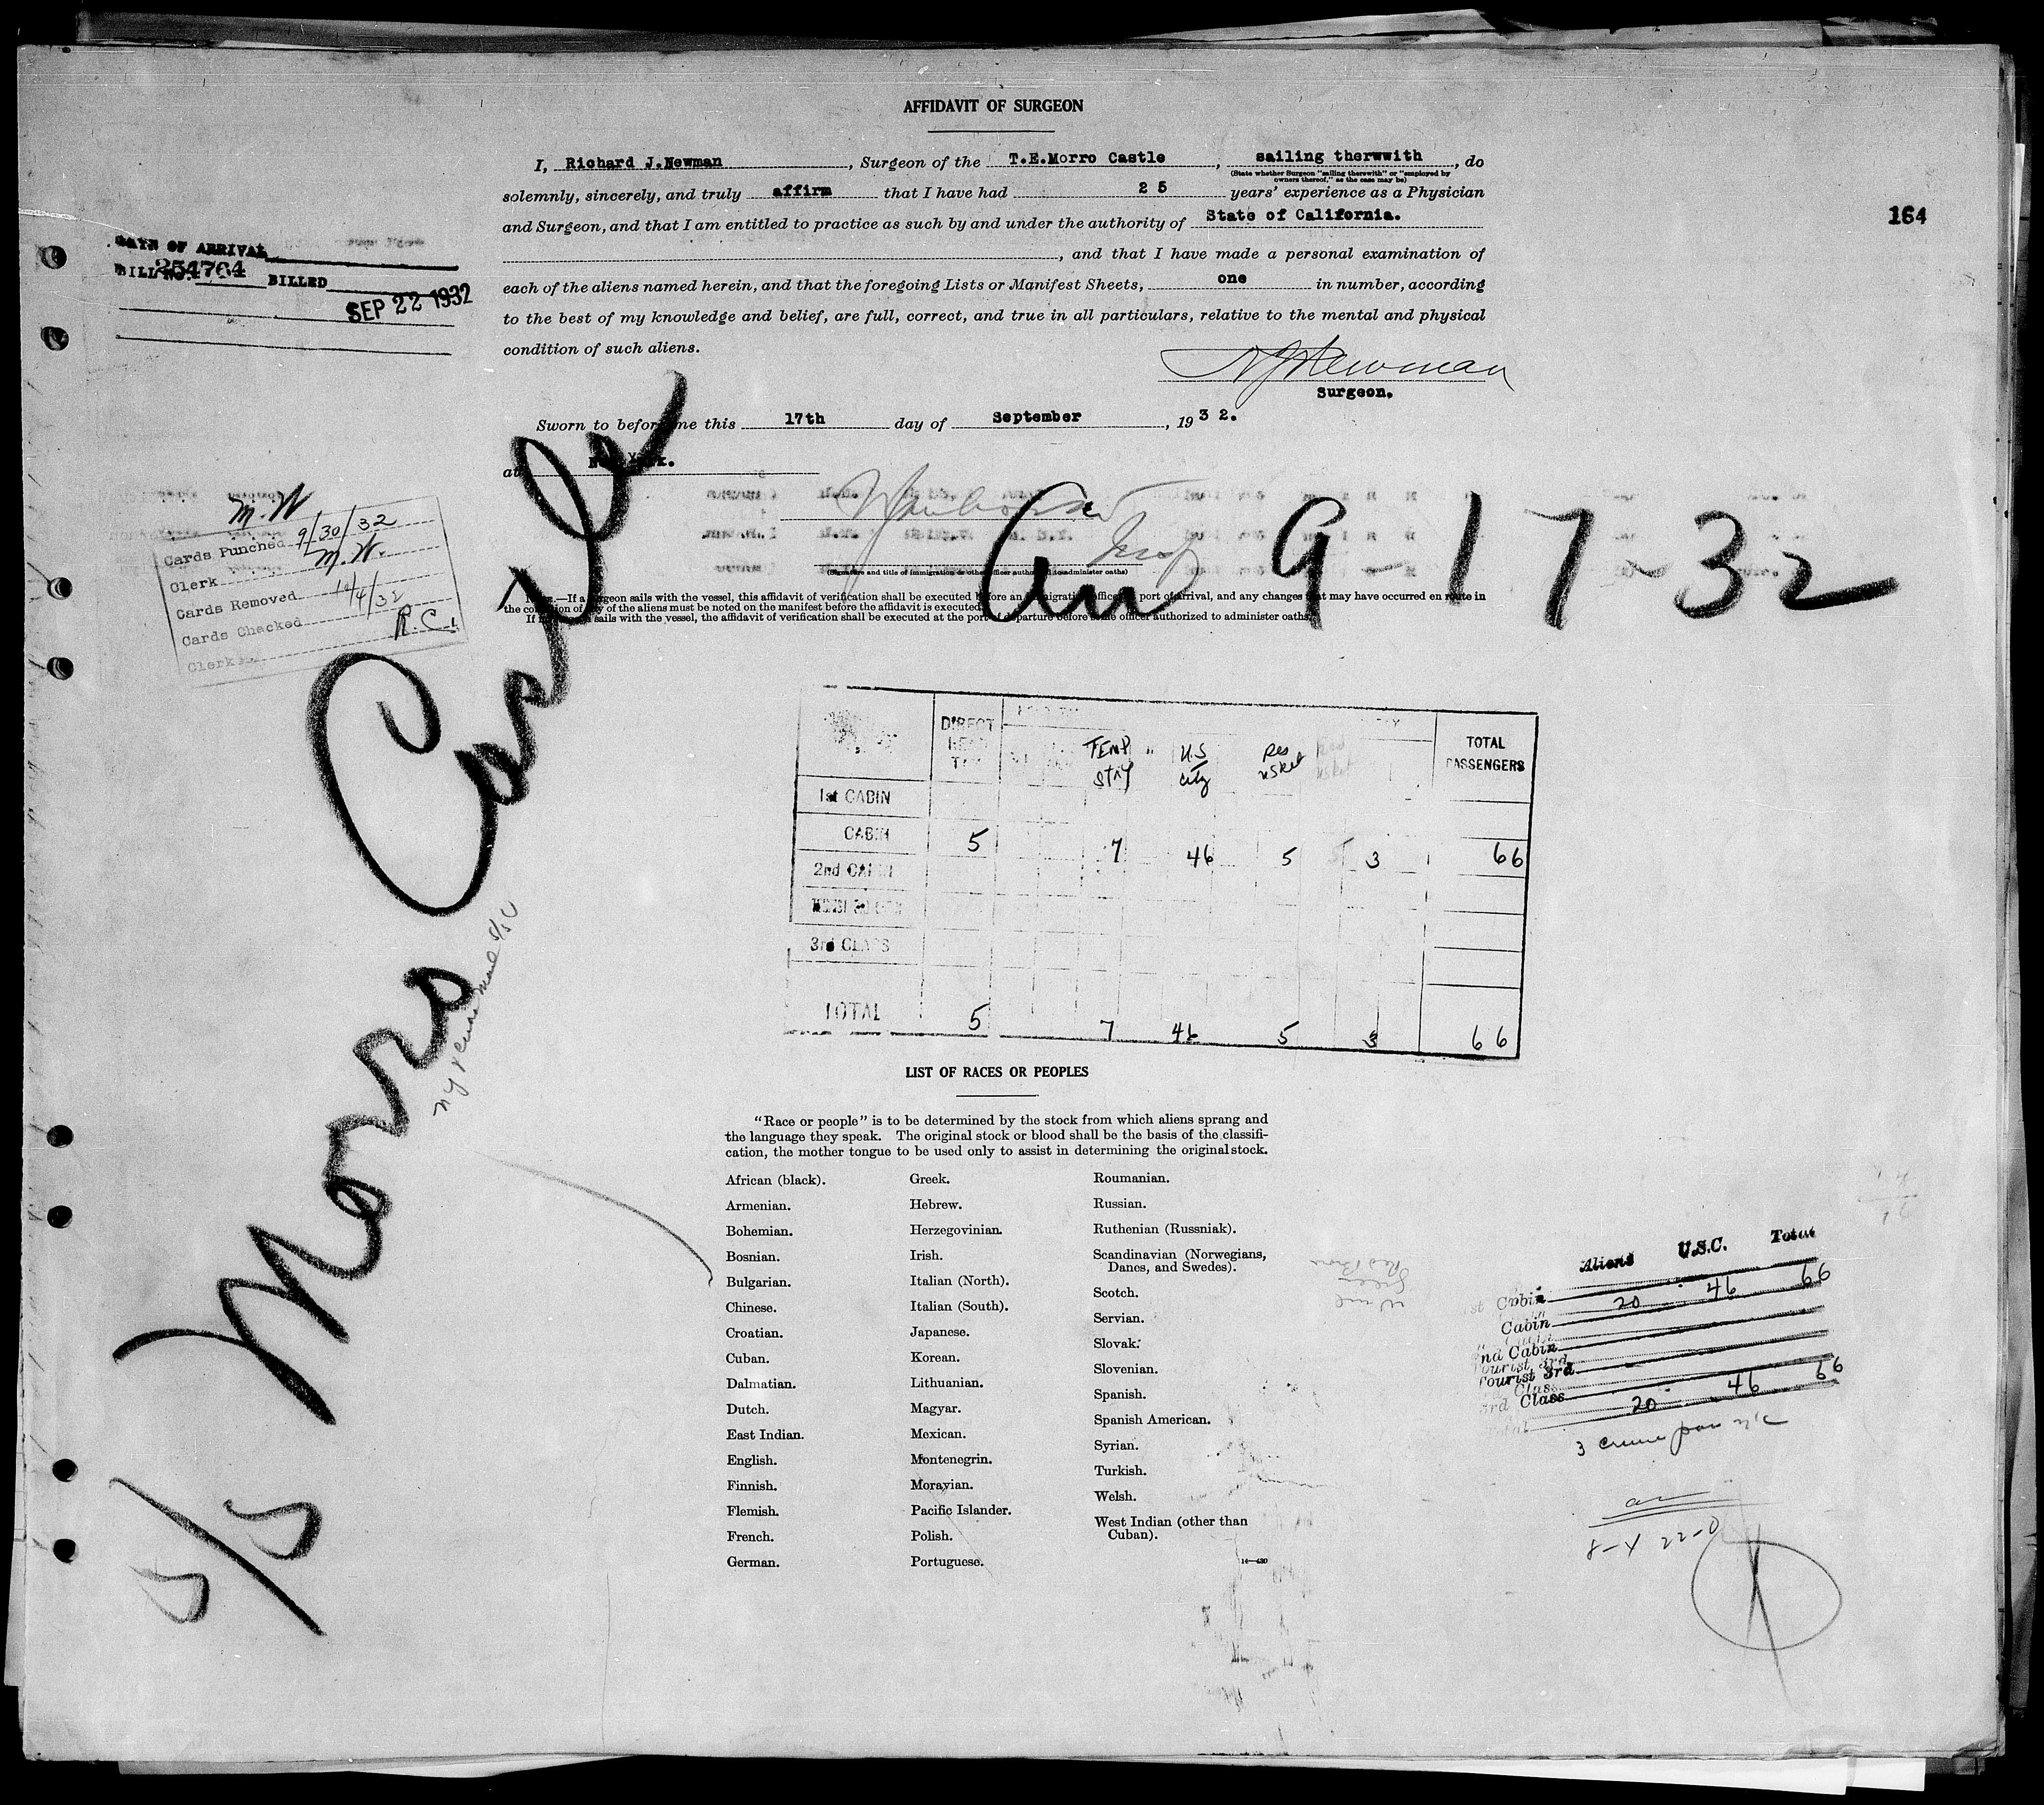 AFFIDAVIT OF SURGEON
164
I, Richard J.Newman, Surgeon of the T.E.Morro Castle, sailing therwwith, do
(State whether Surgeon "sailing therewith" or "employed by
owners thereof," as the case may be)
solemnly, sincerely, and truly affirm that I have had 25 years' experience as a Physician
and Surgeon, and that I am entitled to practice as such by and under the authority of State of California.
, and that I have made a personal examination of
each of the aliens named herein, and that the foregoing Lists or Manifest Sheets, one in number, according
to the best of my knowledge and belief, are full, correct, and true in all particulars, relative to the mental and physical
condition of such aliens.
Surgeon.
Sworn to before me this 17th day of September, 1932.
at New York.
DATE OF ARRIVAL
BILL NO. 254764 BILLED
SEP 22 1932
M.W
Cards Punched 9/30/32
Clerk M.W.
Cards Removed 10/4/32
Cards Checked
Clerk R.C.
Insp
(Signature and title of immigration or other officer authorized to administer oaths)
NOTE.—If a surgeon sails with the vessel, this affidavit of verification shall be executed before an immigration officer at port of arrival, and any changes that may have occurred en route in
the condition of any of the aliens must be noted on the manifest before the affidavit is executed.
If no surgeon sails with the vessel, the affidavit of verification shall be executed at the port of departure before some officer authorized to administer oaths.
Arr 9-17-32
S/S Morro Castle
DIRECT HEAD TAX
TEMP STAY
U.S City
Res
TOTAL PASSENGERS
1st CABIN
CABIN 5 7 46 5 3 66
2nd CABIN
3rd CLASS
TOTAL 5 7 46 5 3 66
LIST OF RACES OR PEOPLES
"Race or people" is to be determined by the stock from which aliens sprang and
the language they speak. The original stock or blood shall be the basis of the classifi-
cation, the mother tongue to be used only to assist in determining the original stock.
African (black).
Armenian.
Bohemian.
Bosnian.
Bulgarian.
Chinese.
Croatian.
Cuban.
Dalmatian.
Dutch.
East Indian.
English.
Finnish.
Flemish.
French.
German.
Greek.
Hebrew.
Herzegovinian.
Irish.
Italian (North).
Italian (South).
Japanese.
Korean.
Lithuanian.
Magyar.
Mexican.
Montenegrin.
Moravian.
Pacific Islander.
Polish.
Portuguese.
Roumanian.
Russian.
Ruthenian (Russniak).
Scandinavian (Norwegians,
Danes, and Swedes).
Scotch.
Servian.
Slovak.
Slovenian.
Spanish.
Spanish American.
Syrian.
Turkish.
Welsh.
West Indian (other than
Cuban).
Aliens U.S.C. Total
1st Cabin 20 46 66
Cabin
2nd Cabin
Tourist 3rd
3rd Class
Total 20 46 66